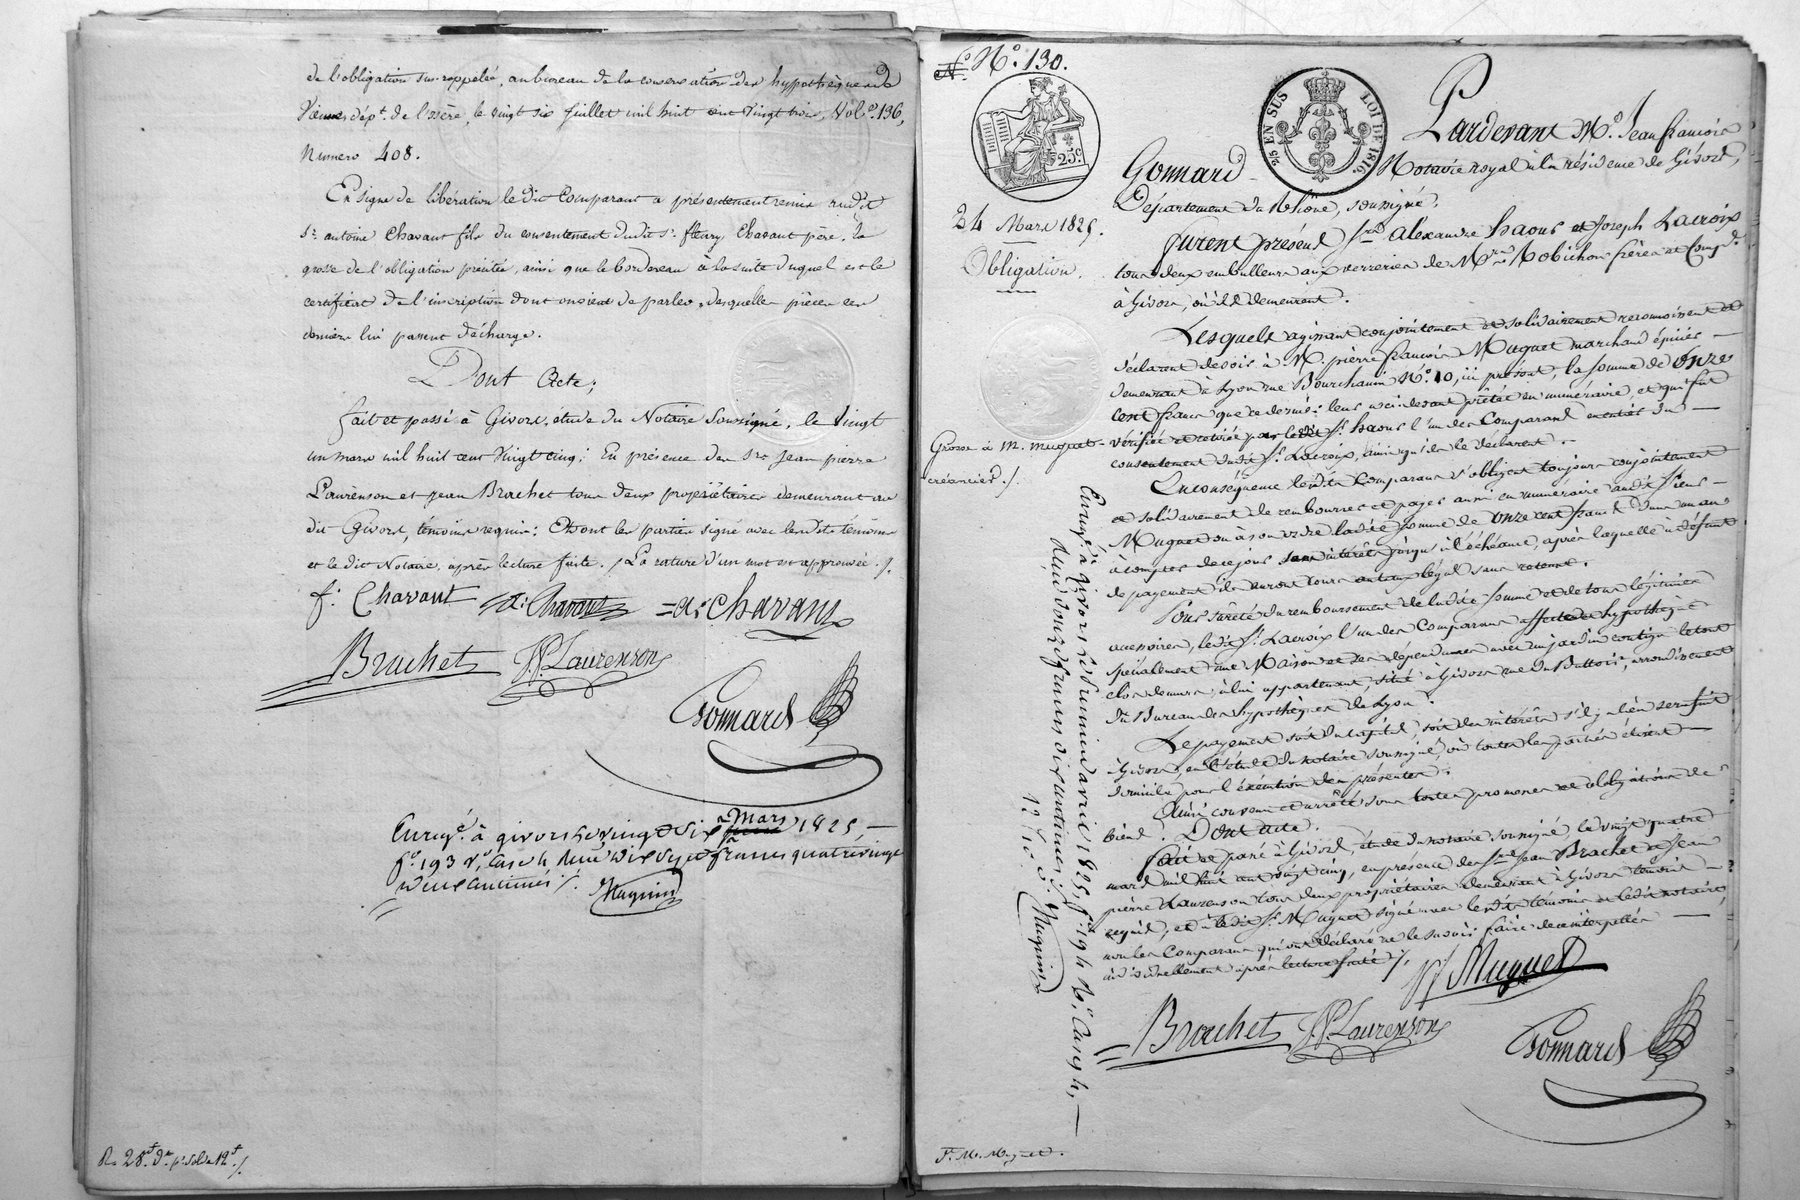 de l'obligation sus-rappelée, au bureau de la conservation des hypothèques de
Vienne dépt. de l'isère, le vingt six juillet mil huit cent vingt trois, Vol.e 196,
Numero 408.
En signe de libération le dit Comparant a présentement remis audit
Sr. antoine Chavant fils du consentement dudit Sr. fleury Chavant père, la
grosse de l'obligation précitée, ainsi que le bordereau à la suite duquel est le
certificat de l'inscription dont on vient de parler, desquelles pièces ces
derniers lui passent décharge.
Dont Acte;
fait et passé à Givors, étude du Notaire Soussigné, le Vingt
un mars mil huit cent Vingt cinq; En présence des Srs. Jean pierre
Laurenson et Jean Brachet tous deux propriétaires demeurant au
dit Givors, témoins requis; Et ont les parties signé avec lesdits témoins
et le dit Notaire, après lecture faite. / La rature d'un mot est approuvée ./.
f. Chavant a: Chavant =ac chavant
Brachet J.P. Laurenson
Gonnard
Enregé. à givors le vingt Six mars 1825, —
f° 193 vo. Case 4 Reçu dix Sept francs quatrevingt
deux centimes ./.
Mugnier
N° N°. 130.
25 EN SUS
LOI DE 1816.
25c.
Pardevant Me. Jean francois
Gonnard Notaire royal à la résidence de Givors,
Département du Rhône, soussigné.
24 Mars 1825.
Obligation.
furent présens Srs. Alexandre haour et Joseph Lacroix
tous deux emballeurs aux verreries de Mrs. Robichon frères et Comp.e
à Givors, où ils demeurent.
Lesquels agissant conjointement et solidairement reconnoissent et
déclarent devoir à M. pierre francois Muguet marchand épicier —
demeurant à Lyon rue Bourchanin N°. 10, ici présent, la somme de onze
cent francs que ce dernier leur a ci-devant prêtée en numéraire, et qui fut
vérifiée et retirée par ledit Sr. haour l'un des Comparans en entier du —
consentement dudit Sr. Lacroix, ainsi qu'ils le déclarent.
Grosse à M. Muguet
créancier ./.
En conséquence lesdits Comparans s'obligent toujours conjointement
et solidairement de rembourser et payer aussi en numéraire audit Sieur —
Muguet ou à son ordre ladite somme de onze cent francs dans un an
à compter de ce jour sans intérêts jusqu'à l'échéance, après laquelle à défaut
de payement ils auront cours au taux légal sans retenue.
Pour sûreté du remboursement de ladite somme et de tous légitimes
accessoires, ledit Sr. Lacroix l'un des Comparans affecte et hypothèque
spécialement une Maison et ses dépendances avec un jardin contigu le tout
clos de murs, à lui appartenant, situé à Givors rue du Suttoir, arrondissement
du Bureau des hypothèques de Lyon.
Le payement soit du capital, soit des intérêts s'il y a lieu sera fait
à Givors, en l'étude du notaire soussigné, où toutes les parties élisent —
domicile pour l'exécution des présentes.
Ainsi convenu et arrêté sous toutes promesses et obligations de
biens. Dont acte.
fait et passé à Givors, étude du notaire soussigné le vingt quatre
mars mil huit cent vingt cinq, en présence des Srs. Jean Brachet et Jean
pierre Laurenson tous deux propriétaires demeurant à Givors témoins —
requis; et a ledit Sr. Muguet signé avec lesdits témoins et ledit notaire,
non les Comparans qui ont déclaré ne le savoir faire de ce interpellés —
individuellement après lecture faite ./.
Muguet
Brachet J.P. Laurenson
Gonnard
Enregé. à givors le deux avril 1825, f° 194 Vo. Case 4, —
Reçu douze francs dix centimes ./.
Mugnier
Fe. M. Muguet.